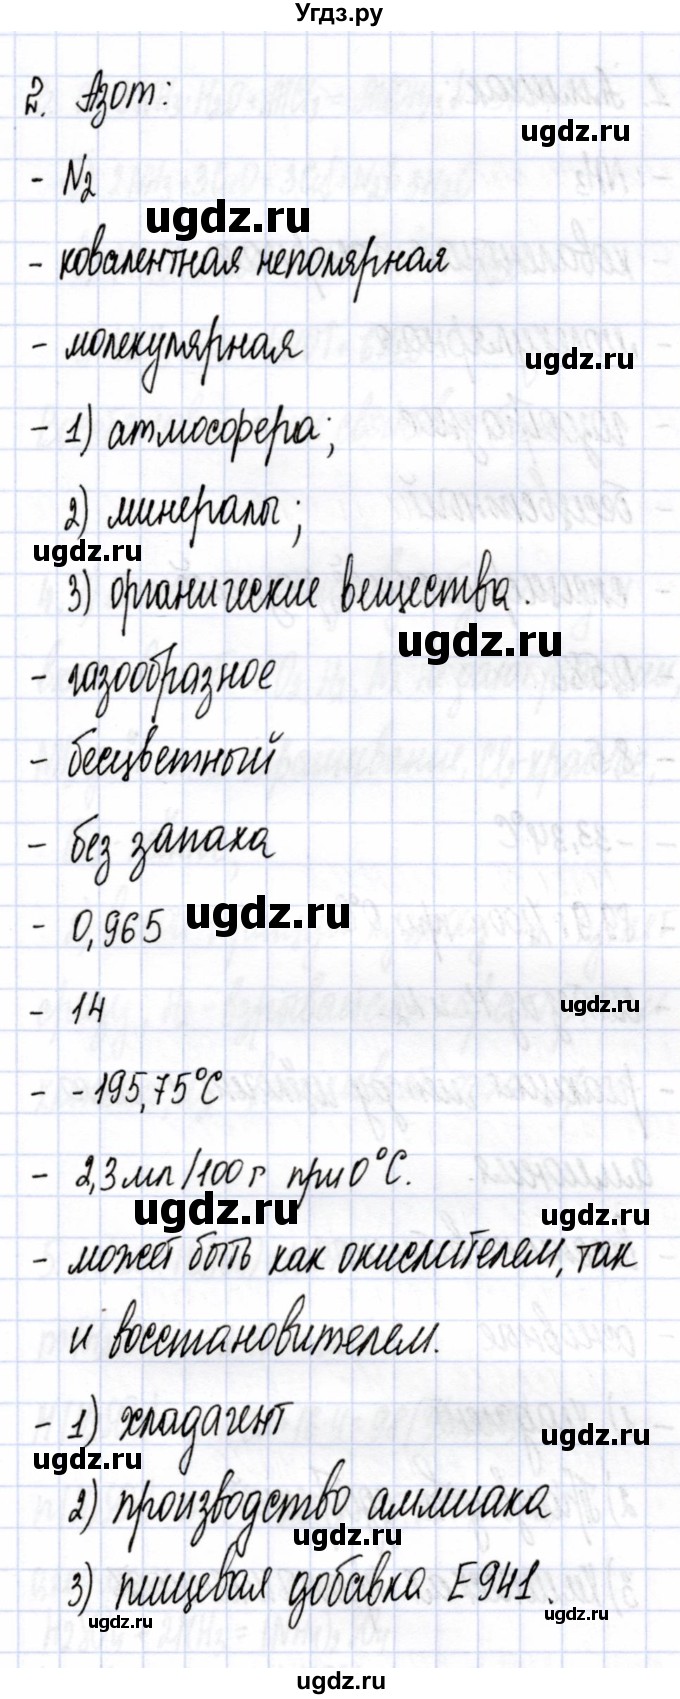 Угдз.ру
2. Азот:
ugdz.ru
- N2
ugdz.ru
- ковалентная неполярная
- молекулярная
ugdz.ru
- 1) атмосфера;
2) минералы;
ugdz.ru
3) органические вещества.
ugdz.ru
- газообразное
- бесцветный
- без запаха
- 0,965
ugdz.ru
- 14
ugdz.ru
- -195,75°C
- 2,3мл/100г при 0°C.
ugdz.ru
ugdz.ru
- может быть как окислителем, так
и восстановителем.
- 1) хладагент
ugdz.ru
ugdz.ru
2) производство аммиака
ugdz.ru
3) пищевая добавка E941.
ugdz.ru
ugdz.ru
ugdz.ru